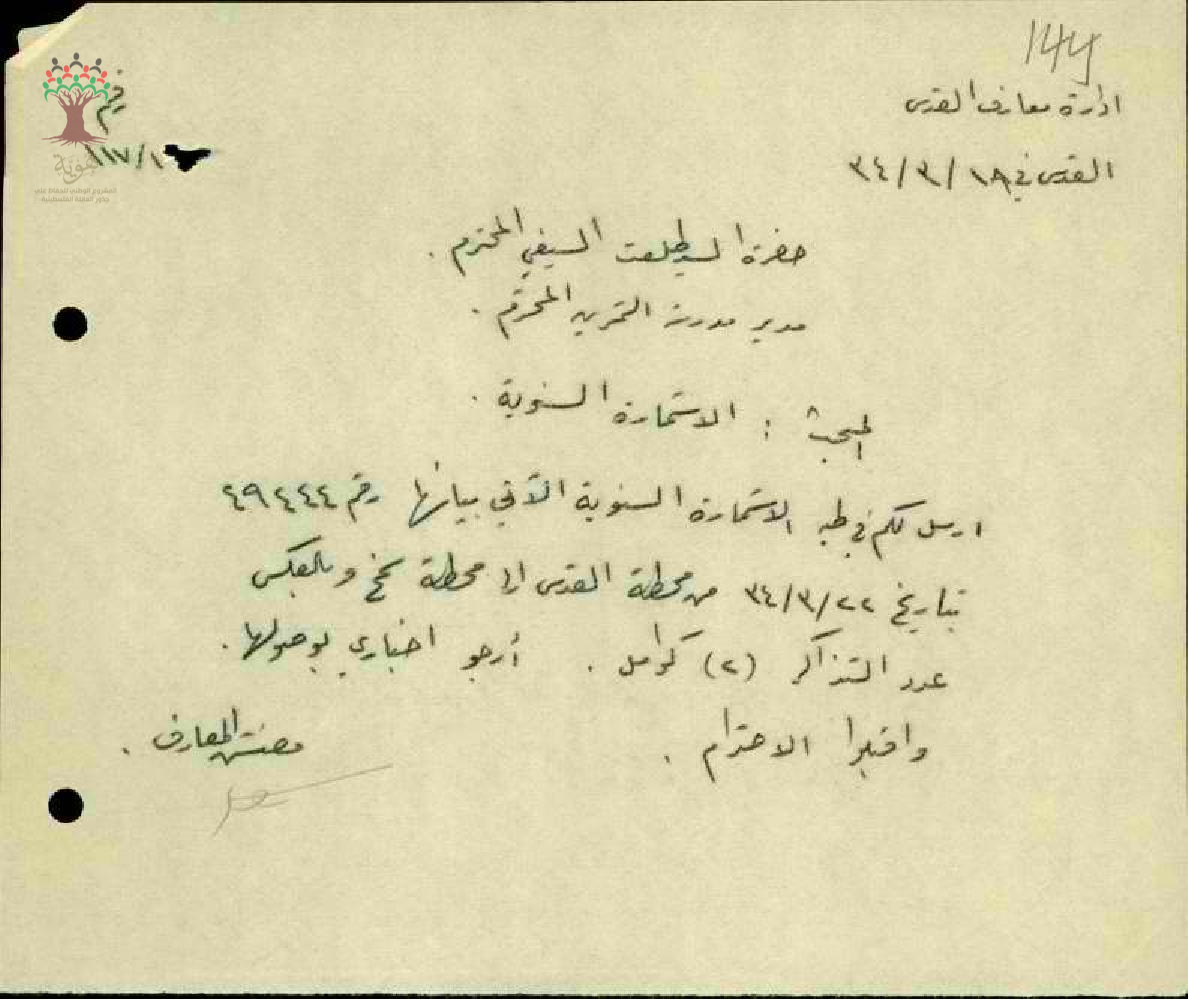 144
ادارة معارف القدس
رقم
القدس في ١٨/٣/٣٤
١١٧/١
حضرة السيد طلعت السيفي المحترم .
مدير مدرسة التمرين المحترم .
المبحث : الاستمارة السنوية .
ارسل لكم في طيه الاستمارة السنوية الآتي بيانها رقم ٤٩٤٤٤
بتاريخ ٢٢/٣/٣٤ من محطة القدس الى محطة سمخ وبالعكس
عدد التذاكر (٢) كوامل . أرجو اخباري بوصولها .
واقبلوا الاحترام .
مفتش المعارف .